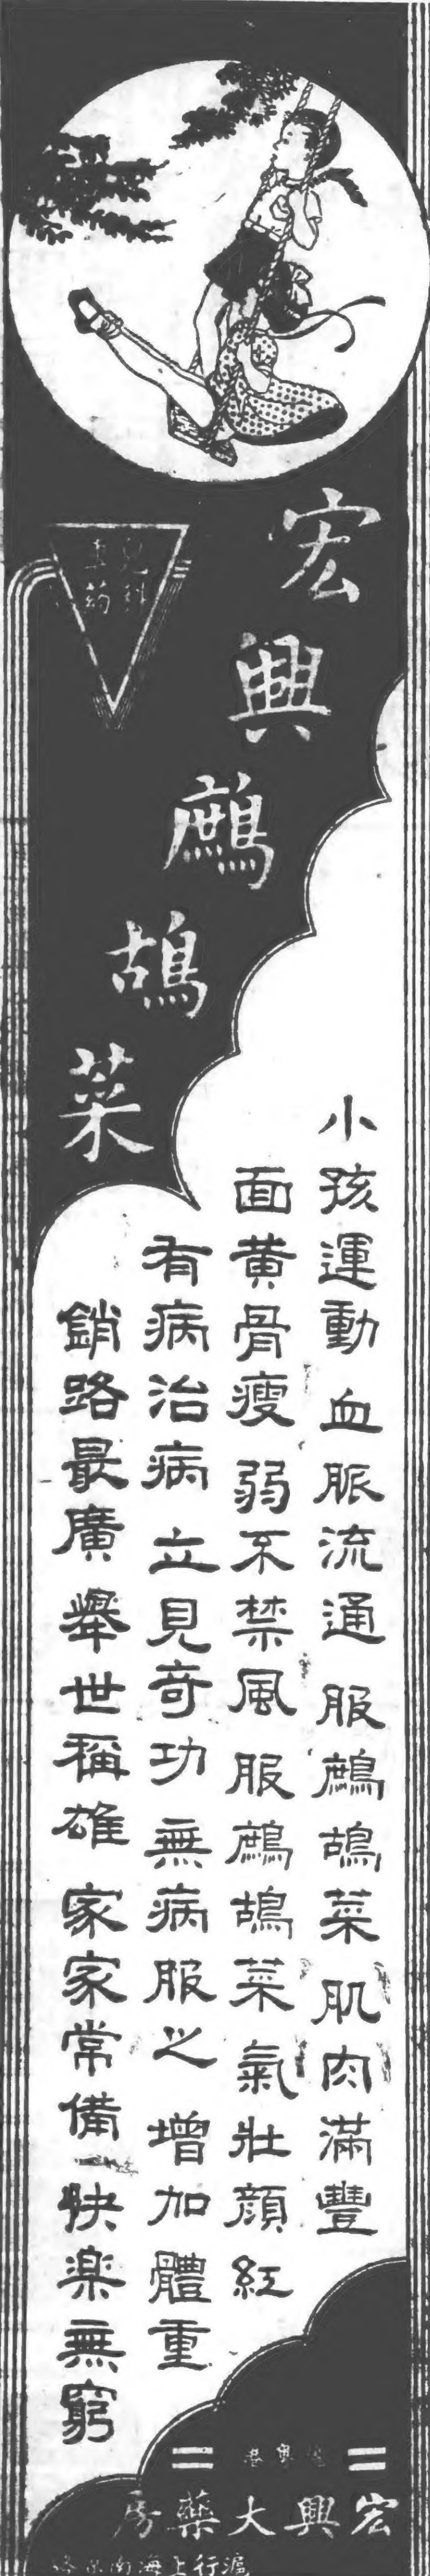 宏興鷓鴣菜
兒科
藥
小孩運動 血脈流通 服鷓鴣菜 肌肉滿豐
面黃骨瘦 弱不禁風 服鷓鴣菜 氣壯顏紅
有病治病 立見奇功 無病服之 增加體重
銷路最廣 舉世稱雄 家家常備 快楽無窮
宏興大藥房
滬行上海南京路